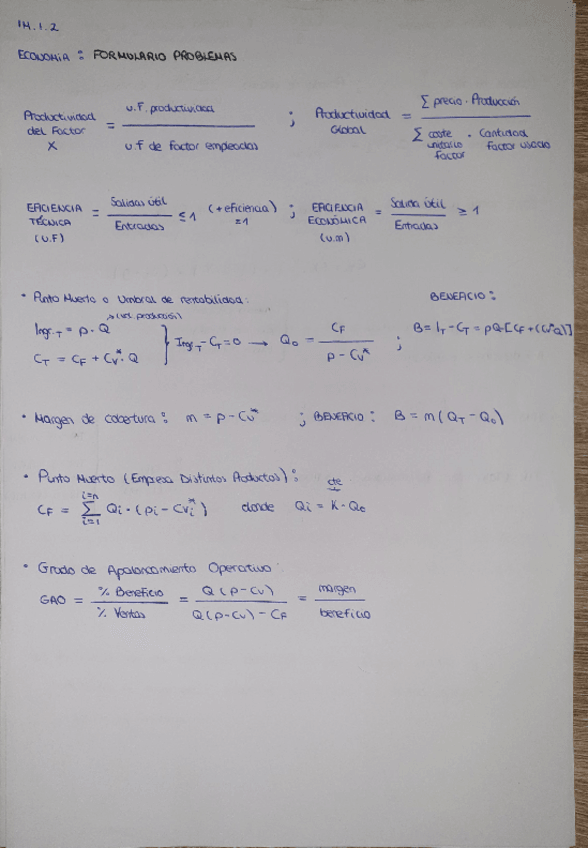 IM.1.2
ECONOMÍA : FORMULARIO PROBLEMAS
Productividad del Factor X = u.F. productividad / u.f de Factor empleados ; Productividad Global = Σ precio · Producción / Σ coste unitario factor · Cantidad factor usado
EFICIENCIA TÉCNICA (u.F) = Salidas útil / Entradas ≤ 1 (+ eficiencia) =1 ; EFICIENCIA ECONÓMICA (u.m) = Salida útil / Entradas ≥ 1
• Punto Muerto o Umbral de rentabilidad: BENEFICIO :
Ingr.T = p · Q → (vol. producción)
CT = CF + CV* · Q } Ingr.T - CT = 0 → Q0 = CF / p - CV* ; B = IT - CT = pQ - [CF + (CV*Q)]
• Margen de cobertura : m = p - CV* ; BENEFICIO : B = m (QT - Q0)
• Punto Muerto (Empresa Distintos Productos) :
CF = Σ i=1 i=n Qi · (pi - CVi*) donde Qi = K · Q0 cte
• Grado de Apalancamiento Operativo:
GAO = % Beneficio / % Ventas = Q (p - CV) / Q (p - CV) - CF = margen / beneficio